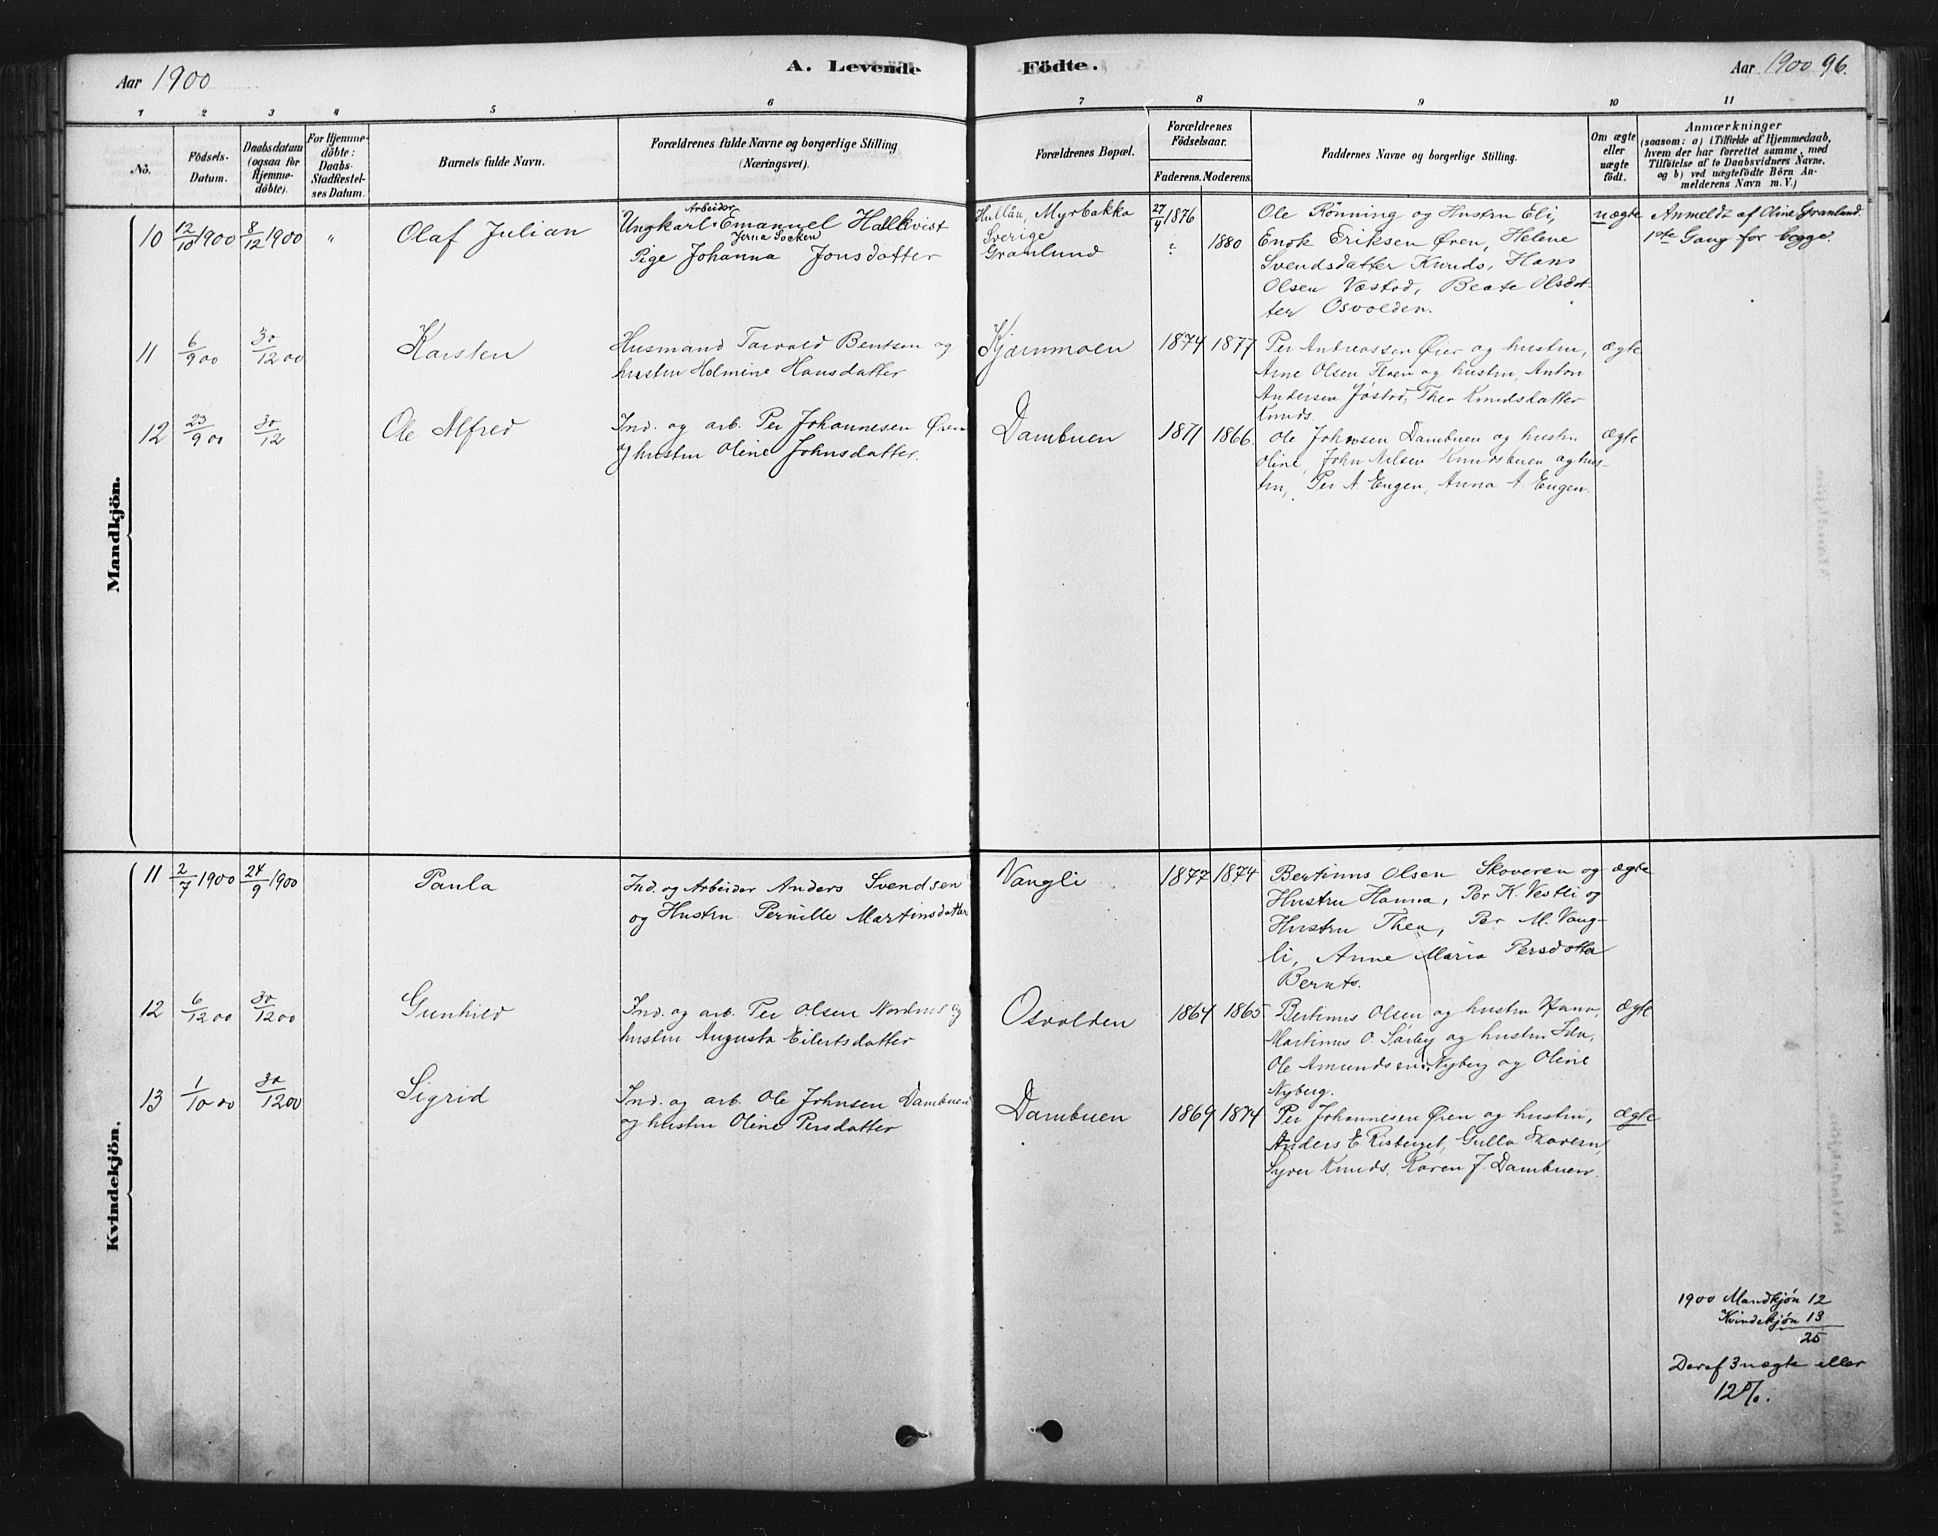 Aar 1900
A. Levende Födte.
Aar 1900 96.
1 2 3 4 5 6 7 8 9 10 11
No.
Födsels-
Datum.
Daabsdatum
(ogsaa for
Hjemme-
döbte).
For Hjemme-
döbte:
Daabs
Stadfæstel-
ses Datum.
Barnets fulde Navn.
Forældrenes fulde Navne og borgerlige Stilling
(Næringsvei).
Forældrenes Bopæl.
Forældrenes
Födselsaar.
Faderens. Moderens.
Faddernes Navne og borgerlige Stilling.
Om ægte
eller
uægte
födt.
Anmærkninger
(saasom: a) i Tilfælde af Hjemmedaab,
hvem der har forrettet samme, med
Tilföielse af to Daabsvidners Navne,
og b) ved uægtefödte Börn An-
melderens Navn m. V.)
Mandkjön.
10 12/10 1900 8/12 1900 " Olaf Julian
Arbeider
Ungkarl Emanuel Hallkvist
Jerna Socken
Pige Johanna Jonsdatter
Hullån, Myrbakka
Sverige
Granlund
27/4 1876
? 1880
Ole Rönning og Hustru Eli,
Enok Eriksen Øren, Helene
Svendsdatter Knuds, Hans
Olsen Væstad, Beate Olsdat-
ter Osvolden.
uægte
Anmeldt af Oline Granlund.
1ste Gang for begge.
11 6/9 00 30/12 00 Karsten
Husmand Torvald Bentsen og
hustru Helmine Hansdatter
Kjærnmoen 1874 1877
Per Andreassen Øier og hustru,
Arne Olsen Floen og hustru, Anton
Andersen Jøstad, Thea Knudsdatter
Knuds.
ægte
12 23/9 00 30/12 Ole Alfred
Ind. og arb. Per Johannesen Øren
og hustru Oline Johnsdatter.
Dambuen 1871 1866
Ole Johnsen Dambuen og hustru
Oline, John Nilsen Knudsbuen og hus-
tru, Per A Engen, Anna A. Engen.
ægte
Kvindekjön.
11 2/7 1900 24/9 1900 Paula
Ind. og Arbeider Anders Svendsen
og Hustru Pernille Martinsdatter
Vangli 1877 1874
Bertinus Olsen Skoveren og
Hustru Hanna, Per K. Vestli og
Hustru Thea, Per M. Vang-
li, Anne Maria Persdatter
Bernts.
ægte
12 6/12 00 30/12 00 Gunhild
Ind. og arb. Per Olsen Nordnes og
hustru Augusta Eilertsdatter
Osvolden 1864 1865
Bertinus Olsen og hustru Hanna,
Martinus O. Sørby og hustru Ida,
Ole Amundsen Nyberg og Oline
Nyberg.
ægte
13 1/10 00 30/12 00 Sigrid
Ind. og arb. Ole Johnsen Dambuen
og hustru Oline Persdatter
Dambuen 1869 1874
Per Johannesen Øren og hustru,
Anders E Risberget, Gulla Skovern,
Syver Knuds, Karen J. Dambuen.
ægte
1900 Mandkjön 12
Kvindekjön 13
25
Deraf 3 uægte eller
12 %.